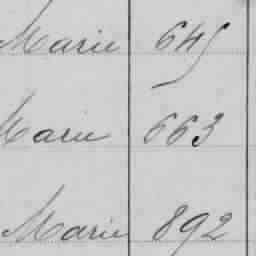 Marie 645
Marie 663
Marie 892